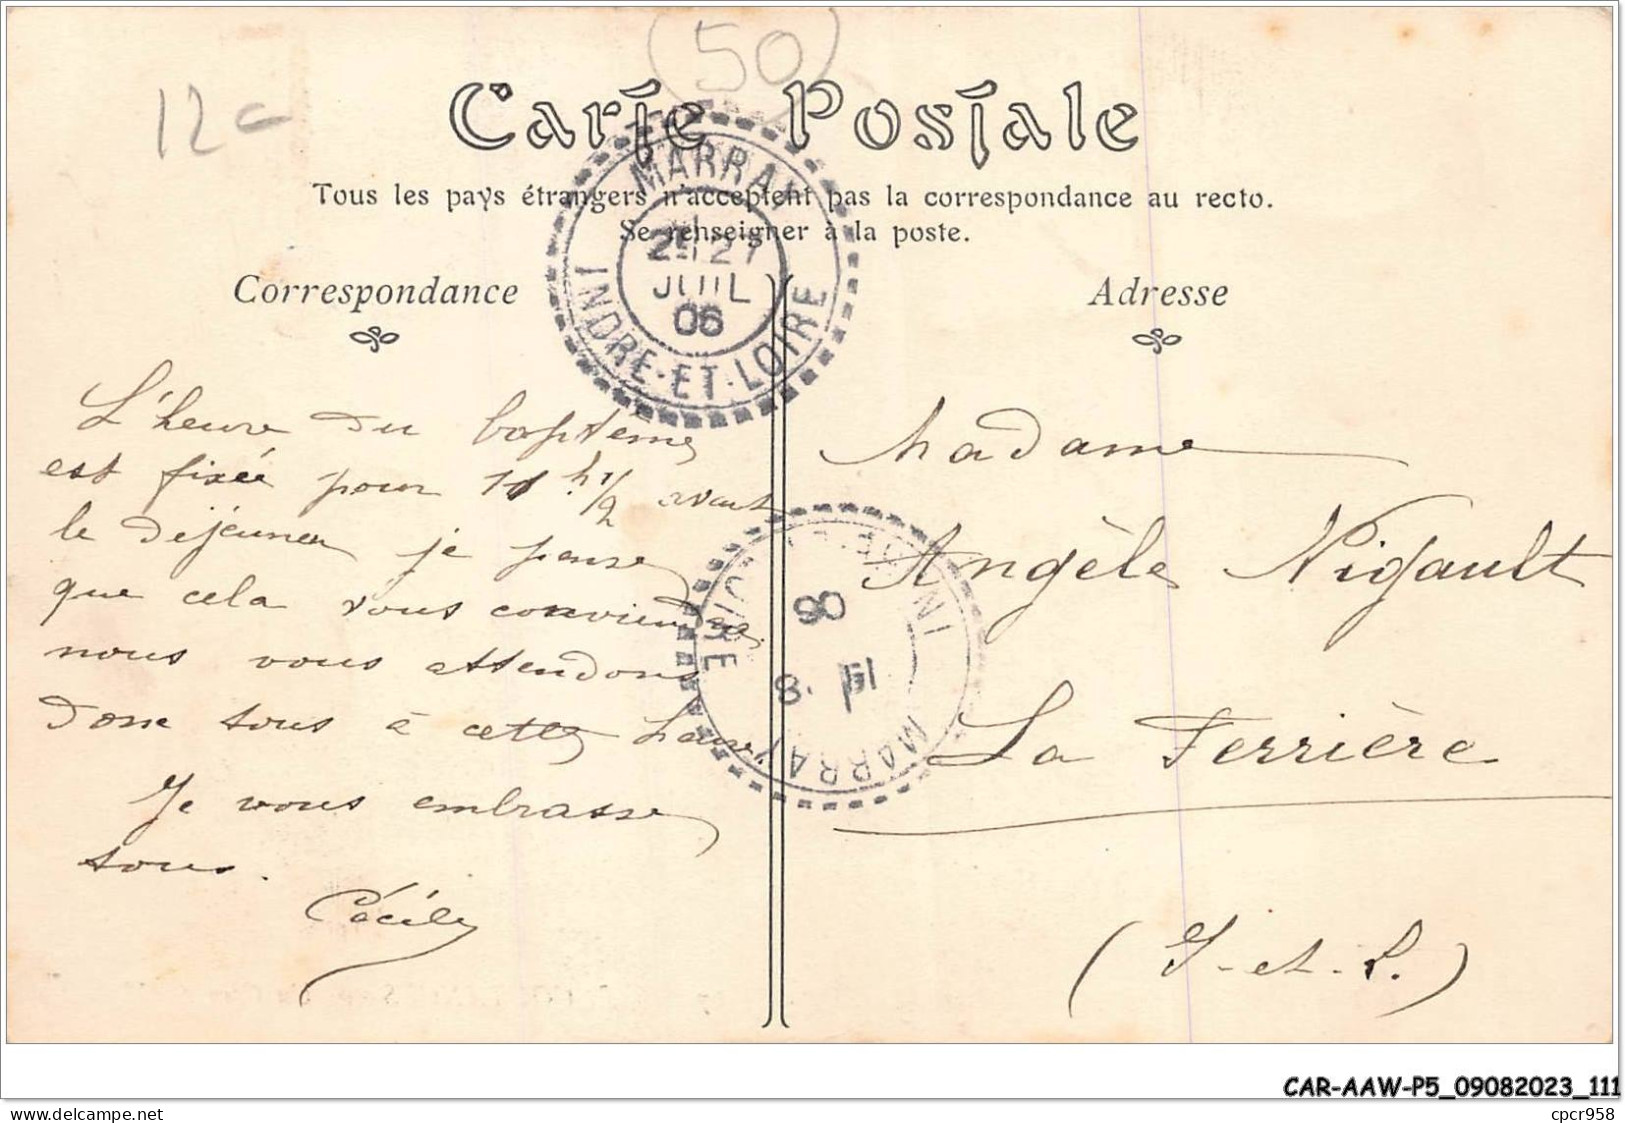 50
12
Carte Postale
Tous les pays étrangers n'acceptent pas la correspondance au recto.
Se renseigner à la poste.
MARRAY
27
JUIL
06
INDRE-ET-LOIRE
Correspondance
Adresse
L'heure du baptême
est fixée pour 11 h. 1/2 avant
le déjeuner je pense
que cela vous conviendra
nous vous attendons
donc tous à cette heure
Je vous embrasse
tous.
Cécile
Madame
Angèle Nigault
La Ferrière
(I-et-L.)
MARRAY
CAR-AAW-P5_09082023_111
www.delcampe.net
cpcr958